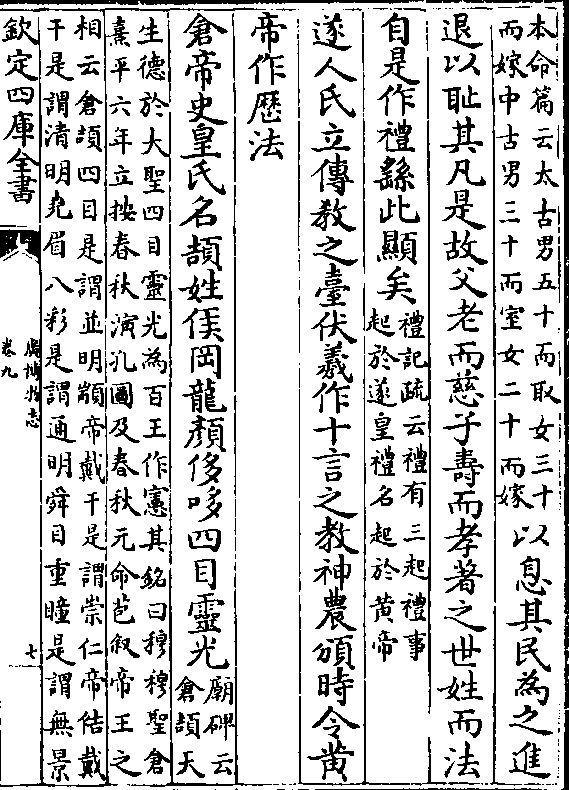 本命篇云太古男五十而取女三十
而嫁中古男三十而室女二十而嫁
以息其民為之進
退以耻其凡是故父老而慈子壽而孝著之世姓而法
自是作禮繇此顯矣
禮記疏云禮有三起禮事
起於遂皇禮名起於黄帝
遂人氏立傳教之臺伏羲作十言之教神農頒時令黄
帝作歴法
倉帝史皇氏名頡姓侯岡龍顔侈哆四目靈光
廟碑云
倉頡天
生德於大聖四目靈光為百王作憲其銘曰穆穆聖倉
熹平六年立按春秋演孔圖及春秋元命苞叙帝王之
相云倉頡四目是謂並明顓帝戴干是謂崇仁帝佶戴
干是謂清明尭眉八彩是謂通明舜目重瞳是謂無景
欽定四庫全書
廣博物志
卷九
七